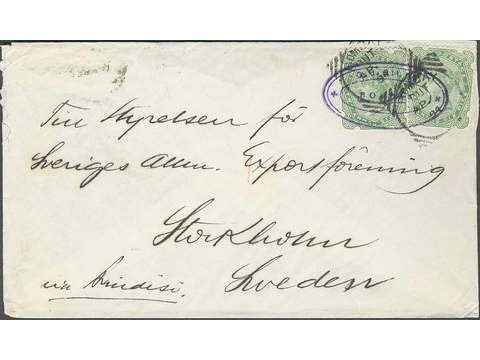 Till Styrelsen för
Sveriges Allm. Exportförening
Stockholm
Sweden
via Brindisi.